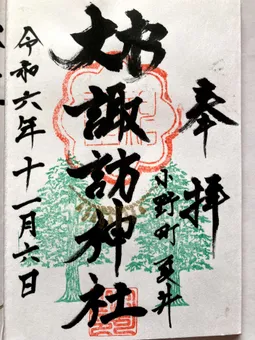 奉拝
小野町 夏井
諏訪神社
令和六年十一月六日